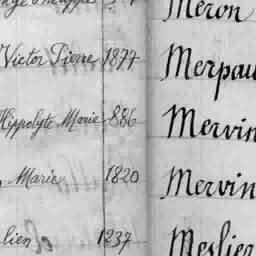 Méron
Victor Pierre 1877 Merpau
Hippolyte Marie 886 Mervin
Marie 1820 Mervin
lien 1237 Meslier